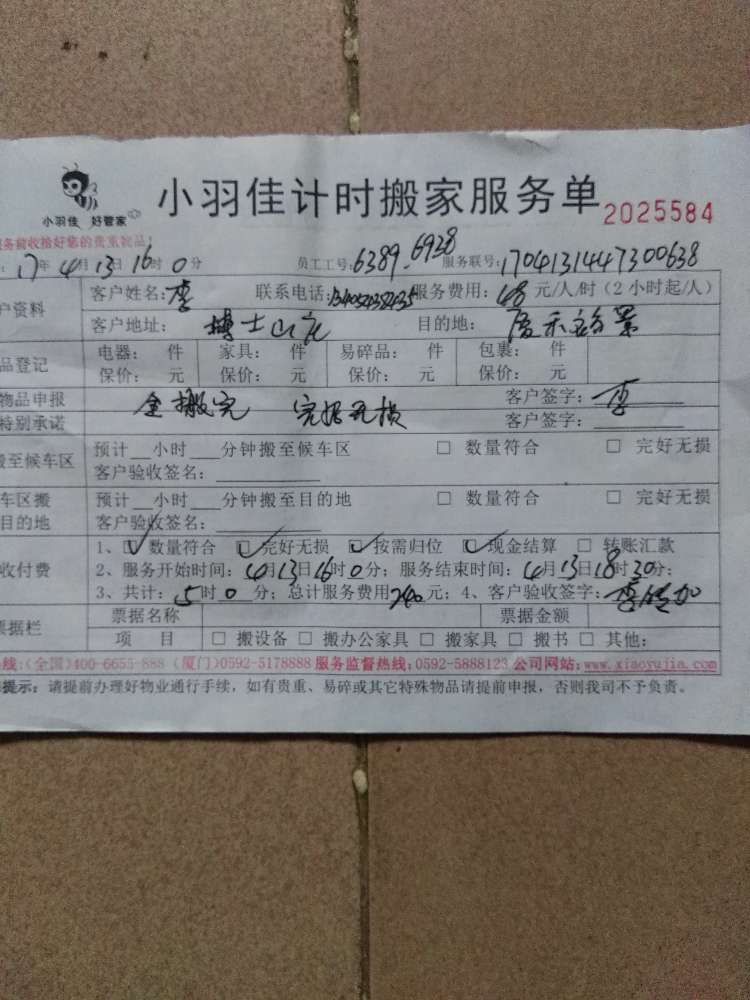 小羽佳 好管家
小羽佳计时搬家服务单 2025584
务前收拾好您的贵重物品
：17年4月13日16时0分 员工工号：6389.6928 服务联号：1704131447300638
户资料 客户姓名：李 联系电话： 服务费用：48元/人/时（2小时起/人）
客户地址：博士山庄 目的地：
品登记 电器： 件 家具： 件 易碎品： 件 包裹： 件
保价： 元 保价： 元 保价： 元 保价： 元
物品申报 全搬完 完好无损 客户签字：李
特别承诺 客户签字：
搬至候车区 预计__小时___分钟搬至候车区 □ 数量符合 □ 完好无损
客户验收签名：
车区搬 预计__小时___分钟搬至目的地 □ 数量符合 □ 完好无损
目的地 客户验收签名：
收付费 1、☑数量符合 ☑完好无损 ☑按需归位 ☑现金结算 □ 转账汇款
2、服务开始时间：4月13日16时0分；服务结束时间：4月13日18时30分；
3、共计：5时0分；总计服务费用240元；4、客户验收签字：李
票据栏 票据名称 票据金额
项 目 □ 搬设备 □ 搬办公家具 □ 搬家具 □ 搬书 □ 其他:
线:(全国)400-6655-888 (厦门)0592-5178888 服务监督热线:0592-5888123 公司网站:www.xiaoyujia.com
提示：请提前办理好物业通行手续，如有贵重、易碎或其它特殊物品请提前申报，否则我司不予负责。